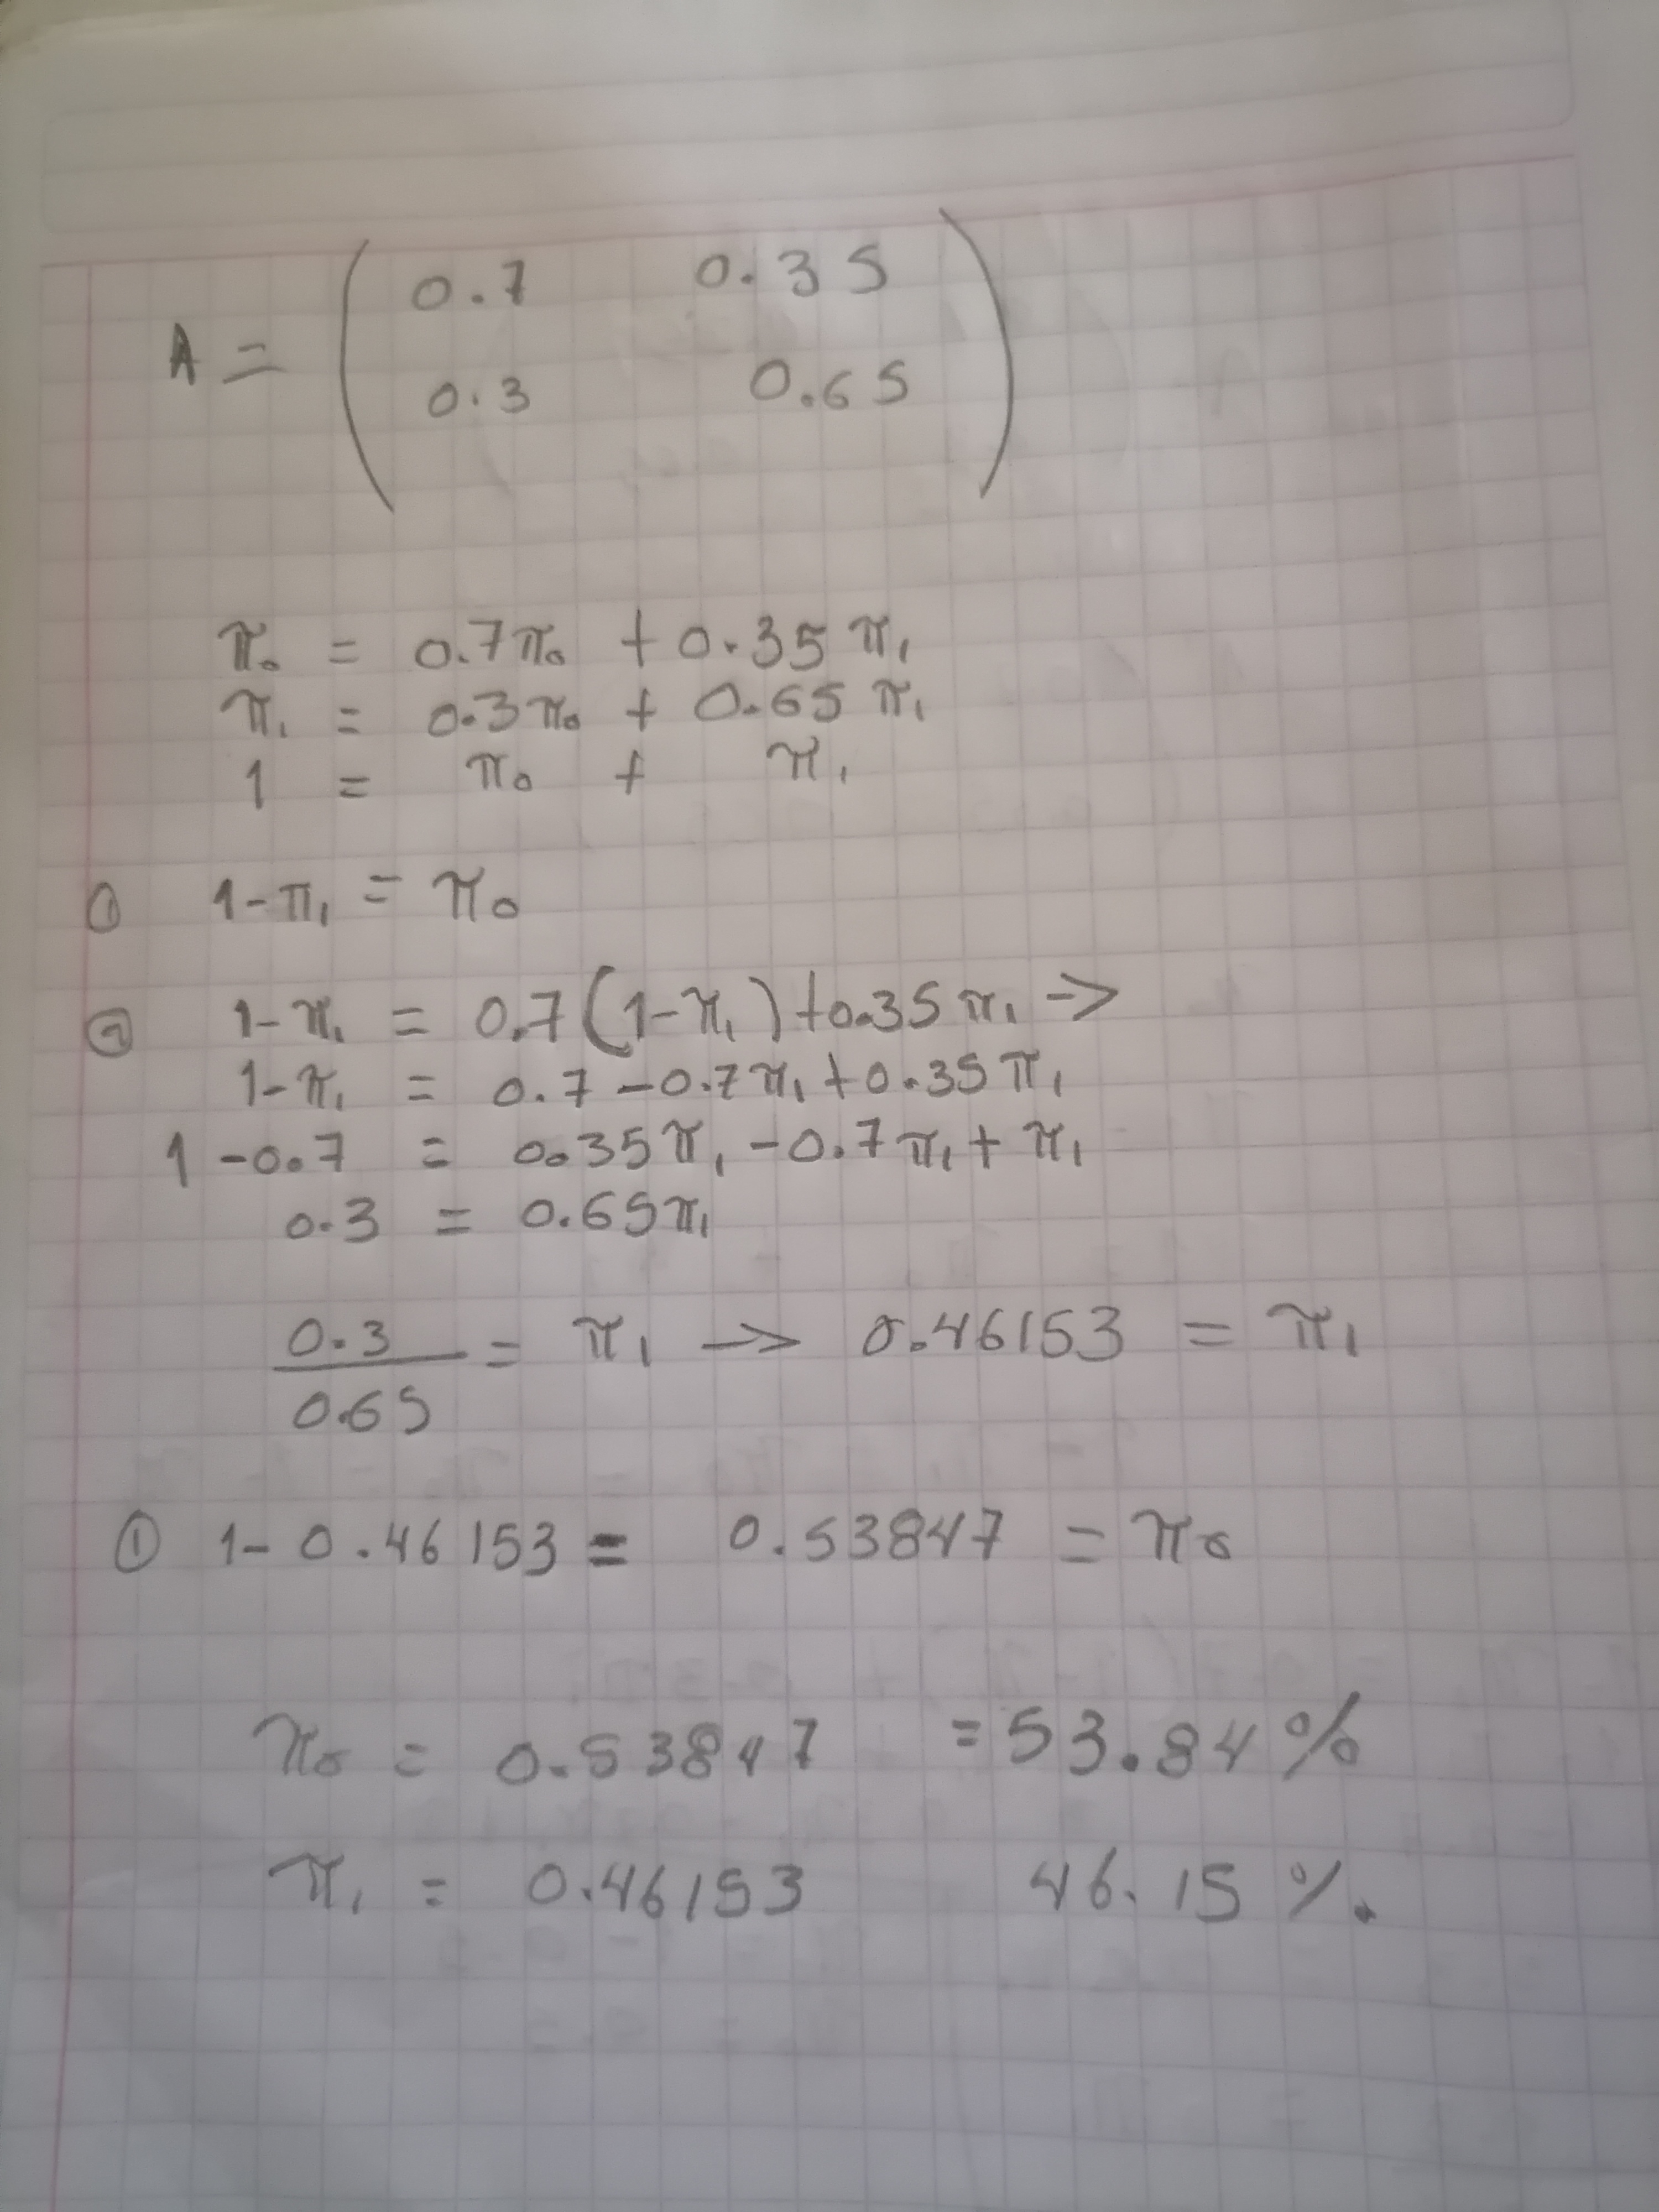 A = ( 0.7 0.35
0.3 0.65 )
π₀ = 0.7π₀ + 0.35 π₁
π₁ = 0.3π₀ + 0.65 π₁
1 = π₀ + π₁
① 1-π₁ = π₀
② 1-π₁ = 0.7(1-π₁)+0.35π₁ ->
1-π₁ = 0.7-0.7π₁+0.35π₁
1-0.7 = 0.35π₁-0.7π₁+π₁
0.3 = 0.65π₁
0.3/0.65 = π₁ -> 0.46153 = π₁
① 1-0.46153 = 0.53847 = π₀
π₀ = 0.53847 = 53.84%
π₁ = 0.46153 46.15%.